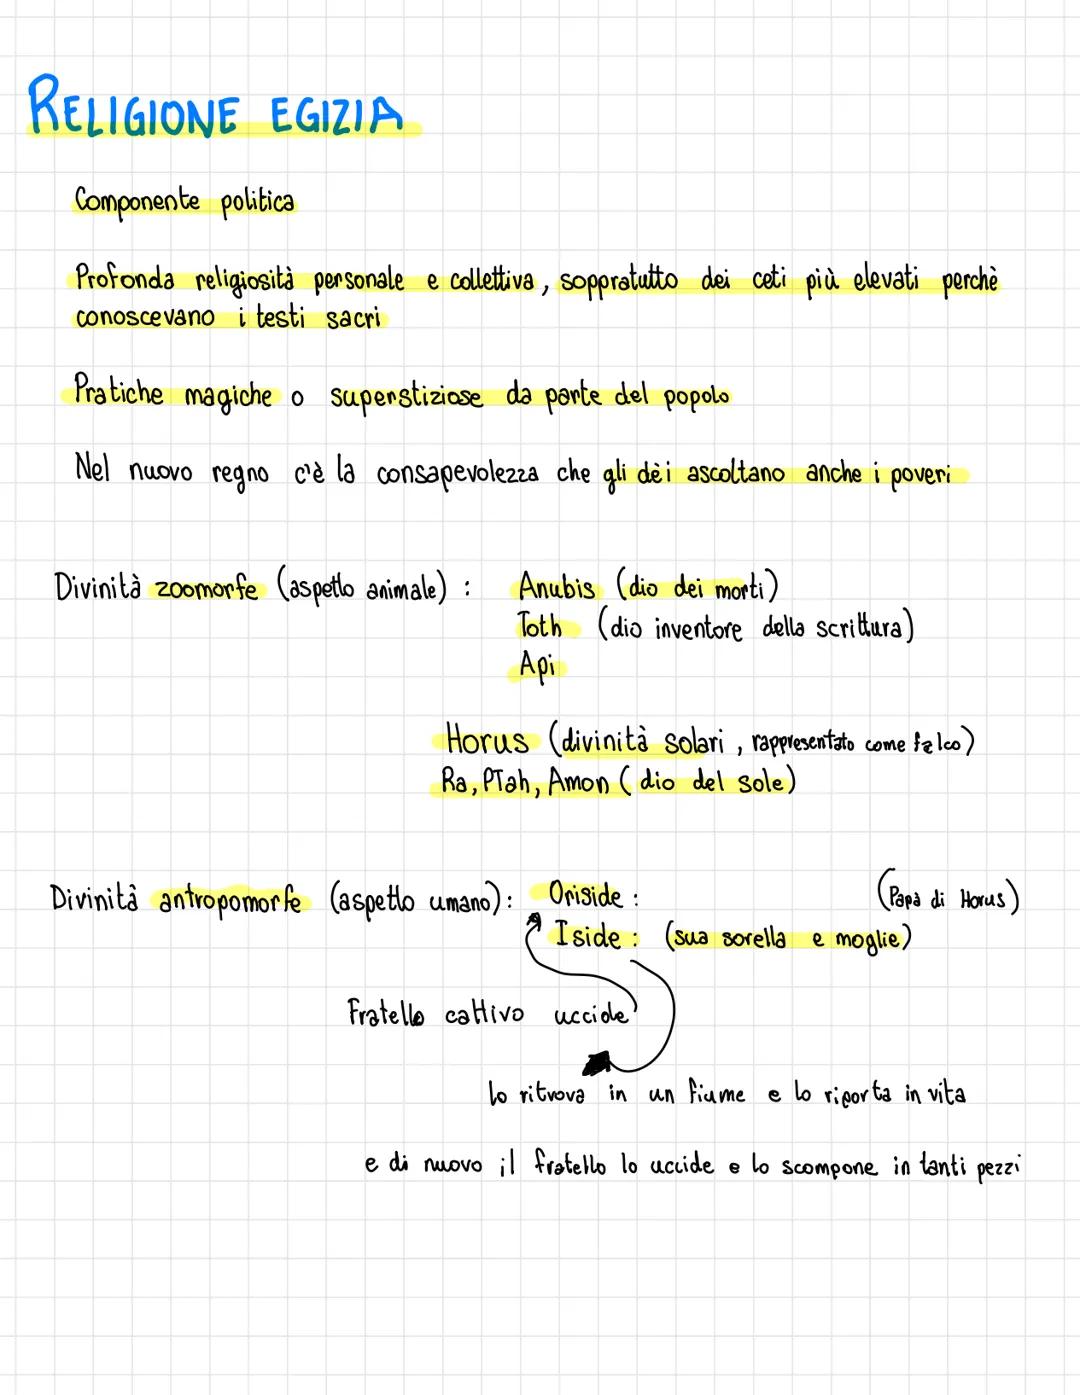 RELIGIONE EGIZIA
Componente politica
Profonda religiosità personale e collettiva, soppratutto dei ceti più elevati perchè
conoscevano i testi sacri
Pratiche magiche o superstiziose da parte del popolo
Nel nuovo regno c'è la consapevolezza che gli dèi ascoltano anche i poveri
Divinità zoomorfe (aspetto animale) : Anubis (dio dei morti)
Toth (dio inventore della scrittura)
Api
Horus (divinità solari, rappresentato come falco)
Ra, PTah, Amon (dio del sole)
Divinità antropomorfe (aspetto umano): Oriside : (Papà di Horus)
Iside : (sua sorella e moglie)
Fratello cattivo uccide
lo ritrova in un fiume e lo riporta in vita
e di nuovo il fratello lo uccide e lo scompone in tanti pezzi